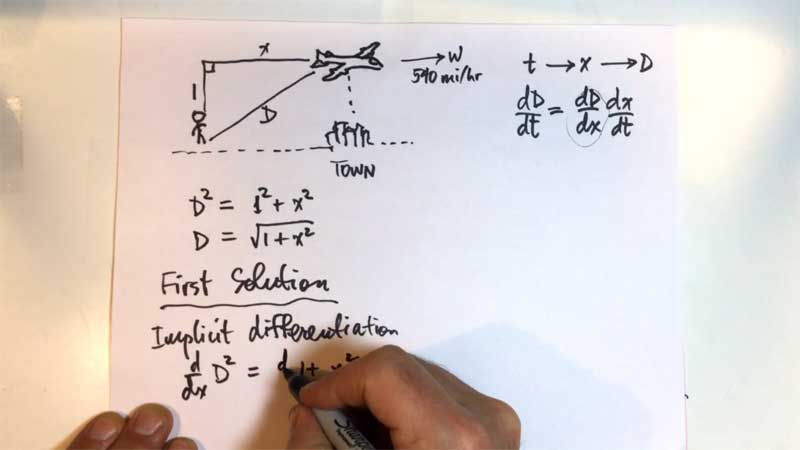 x
W
540 mi/hr
1
D
TOWN
t → x → D
dD/dt = dD/dx dx/dt
D² = 1² + x²
D = √1+x²
First Solution
Implicit differentiation
d/dx D² = d 1+ x²